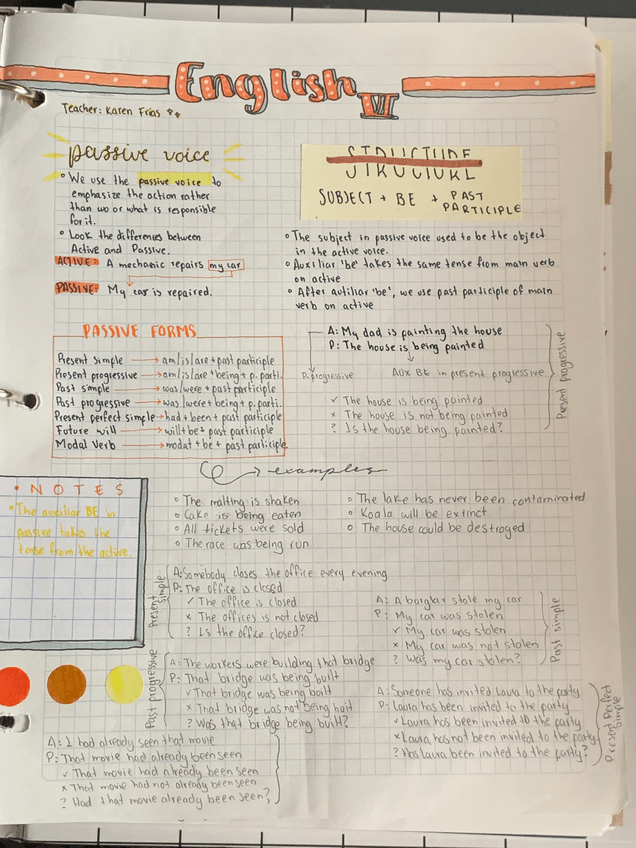 English VI
Teacher: Karen Frias
passive voice
• We use the passive voice to
emphasize the action rather
than wo or what is responsible
for it.
• Look the differences between
Active and Passive.
ACTIVE: A mechanic repairs my car
PASSIVE: My car is repaired.
STRUCTURE
STRUCTURE
SUBJECT + BE + PAST
PARTICIPLE
• The subject in passive voice used to be the object
in the active voice.
• Auxiliar 'be' takes the same tense from main verb
on active
• After autiliar 'be', we use past participle of main
verb on active
PASSIVE FORMS
Present simple → am/is/are + past participle
Present progressive → am/is/are + being + p. parti.
Past simple → was/were + past participle
Past progressive → was/were + being + p. parti.
Present perfect simple → had + been + past participle
Future will → will + be + past participle
Modal verb → modat + be + past participle
A: My dad is painting the house
P: The house is being painted
P. progressive
Aux BE in present progressive
✓ The house is being painted
x The house is not being painted
? Is the house being painted?
Present progressive
examples
• NOTES
• The auxiliar BE in
passive takes the
tense from the active.
° The malting is shaken
° Cake is being eaten
° All tickets were sold
° The race was being run
° The lake has never been contaminated
° Koala will be extinct
° The house could be destroyed
Present simple
A: Somebody closes the office every evening
P: The office is closed
✓ The office is closed
x The offices is not closed
? Is the office closed?
A: A borglar stole my car
P: My car was stolen
✓ My car was stolen
x My car was not stolen
? Was my car stolen?
Past simple
Past progressive
A: The workers were building that bridge
P: That bridge was being built
✓ That bridge was being built
x That bridge was not being built
? Was that bridge being built?
A: Someone has invited Laura to the party
P: Laura has been invited to the party
✓ Laura has been invited to the party
x Laura has not been invited to the party
? Has Laura been invited to the party?
Present Perfect
Simple
A: I had already seen that movie
P: That movie had already been seen
✓ That movie had already been seen
x That movie had not already been seen
? Had that movie already been seen?